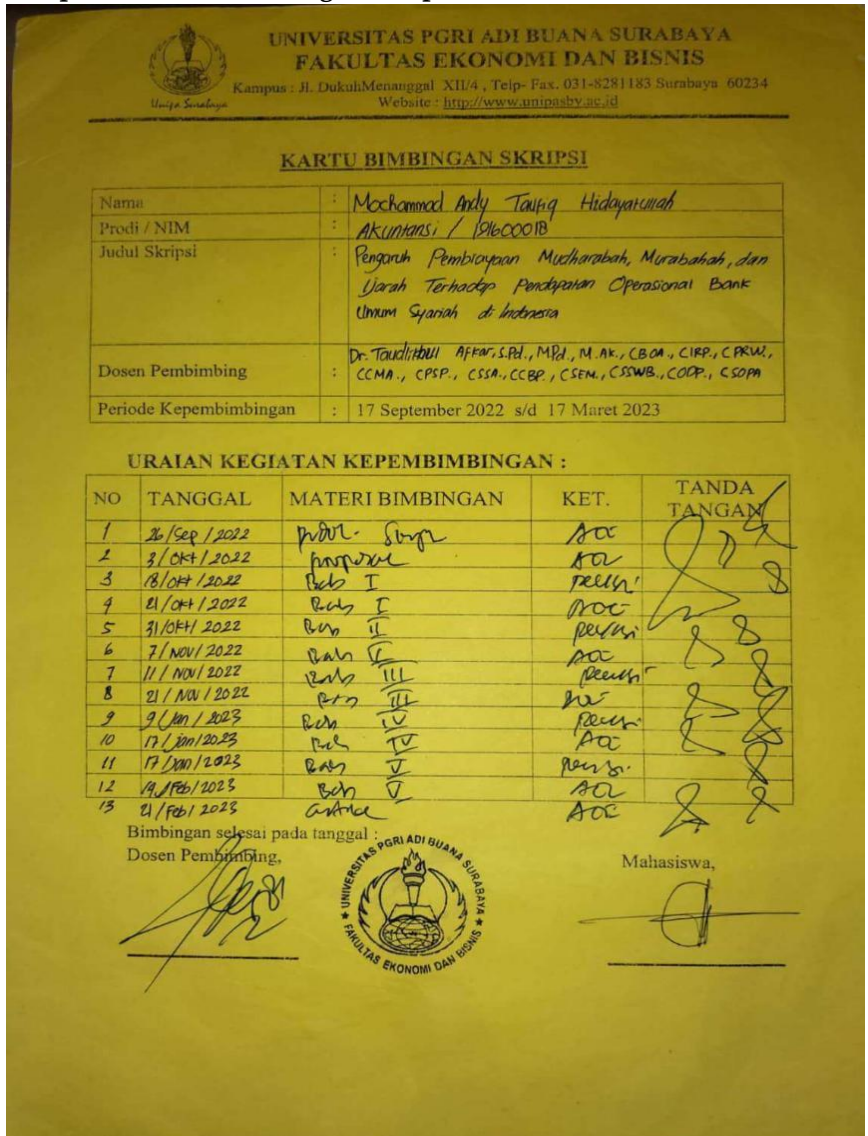 UNIVERSITAS PGRI ADI BUANA SURABAYA
FAKULTAS EKONOMI DAN BISNIS
Kampus : Jl. DukuhMenanggal XII/4 , Telp- Fax. 031-8281183 Surabaya 60234
Website : http://www.unipasby.ac.id
Unipa Surabaya
KARTU BIMBINGAN SKRIPSI
Nama : Mochammad Andy Taufiq Hidayatullah
Prodi / NIM : Akuntansi / 191600018
Judul Skripsi : Pengaruh Pembiayaan Mudharabah, Murabahah, dan
Ijarah Terhadap Pendapatan Operasional Bank
Umum Syariah di Indonesia
Dr. Taudlikhul Afkar, S.Pd., M.Pd., M.Ak., CBOA., CIRP., CPRW.,
Dosen Pembimbing : CCMA., CPSP., CSSA., CCBP., CSEM., CSSWB., COOP., CSOPA
Periode Kepembimbingan : 17 September 2022 s/d 17 Maret 2023
URAIAN KEGIATAN KEPEMBIMBINGAN :
NO TANGGAL MATERI BIMBINGAN KET. TANDA TANGAN
1 26/Sep/2022 ACC
2 3/Okt/2022 proposal ACC
3 18/Okt/2022 Bab I revisi
4 21/Okt/2022 Bab I ACC
5 31/Okt/2022 Bab II revisi
6 7/Nov/2022 Bab II ACC
7 11/Nov/2022 Bab III revisi
8 21/Nov/2022 Bab III ACC
9 9/Jan/2023 Bab IV revisi
10 17/Jan/2023 Bab IV ACC
11 17/Jan/2023 Bab V revisi
12 19/Feb/2023 Bab V ACC
13 21/Feb/2023 ACC
Bimbingan selesai pada tanggal :
Dosen Pembimbing,
Mahasiswa,
UNIVERSITAS PGRI ADI BUANA SURABAYA
FAKULTAS EKONOMI DAN BISNIS